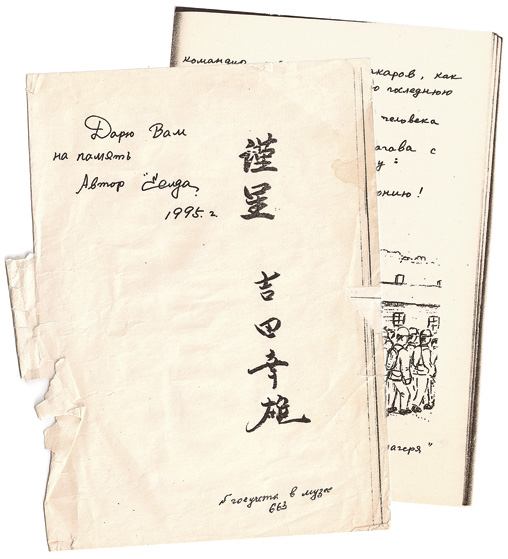 Дарю Вам
на память
Автор "Ёсида"
1995 г.
謹呈
吉田幸雄
5 августа в музее
663
командир
каров, как
последнюю
человека
гава с
у:
онию!
лагеря"